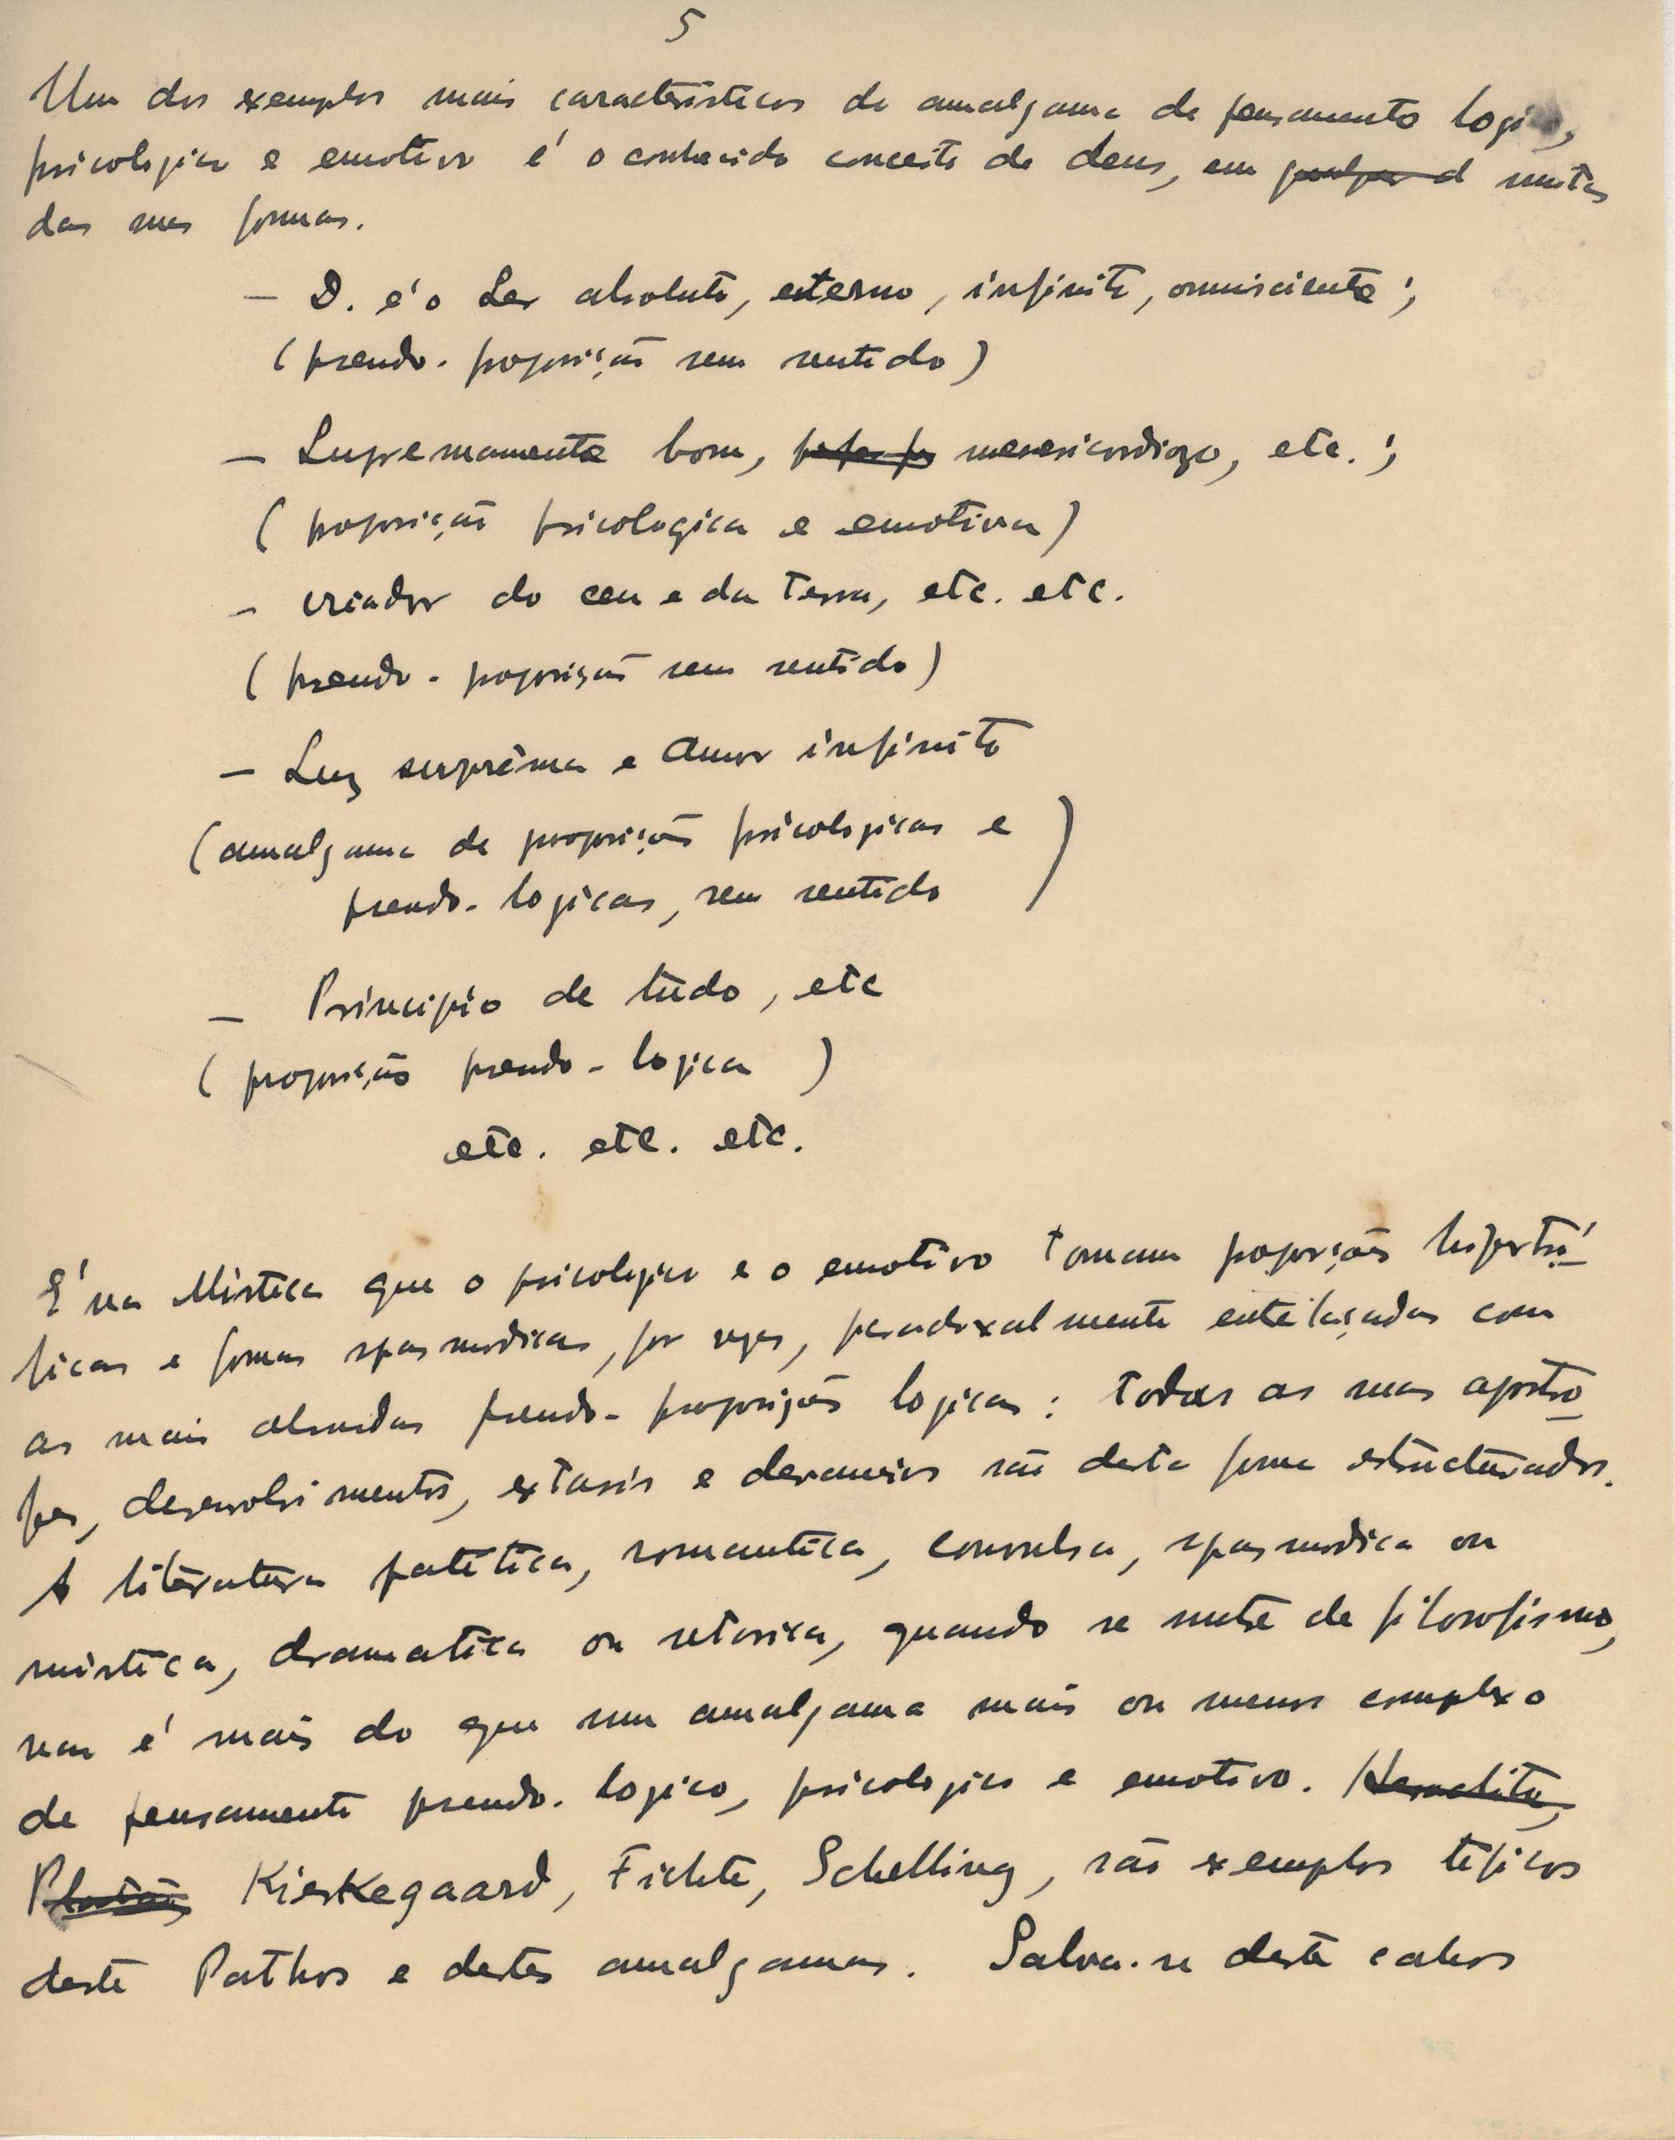 5
Um dos exemplos mais caracteristicos de amalgama de pensamento logico,
psicologico e emotivo é o conhecido conceito de deus, em qualquer d muitas
das suas formas.
— D. é o Ser absoluto, eterno, infinito, omnisciente;
(pseudo-proposição sem sentido)
— Supremamente bom, misericordiozo, etc.;
(proposição psicologica e emotiva)
— criador do ceu e da terra, etc. etc.
(pseudo-proposição sem sentido)
— Luz suprèma e Amor infinito
(amalgama de proposições psicologicas e
pseudo-logicas, sem sentido)
— Principio de tudo, etc
(proposição pseudo-logica)
etc. etc. etc.
É na Mistica que o psicologico e o emotivo tomam proporções hipertró-
ficas e formas spasmodicas, por vezes, paradoxalmente entelaçadas com
as mais absurdas pseudo-proposições logicas: todas as suas apostro-
fes, desenvolvimentos, extasis e devaneios são desta forma estructurados.
A literatura patética, romantica, convulsa, spasmodica ou
mistica, dramatica ou retorica, quando se mete de filosofismo,
nam é mais do que um amalgama mais ou menos complexo
de pensamento pseudo-logico, psicologico e emotivo. Heraclito,
Platão, Kierkegaard, Fichte, Schelling, são exemplos tipicos
deste Pathos e destes amalgamas. Salva-se deste cahos